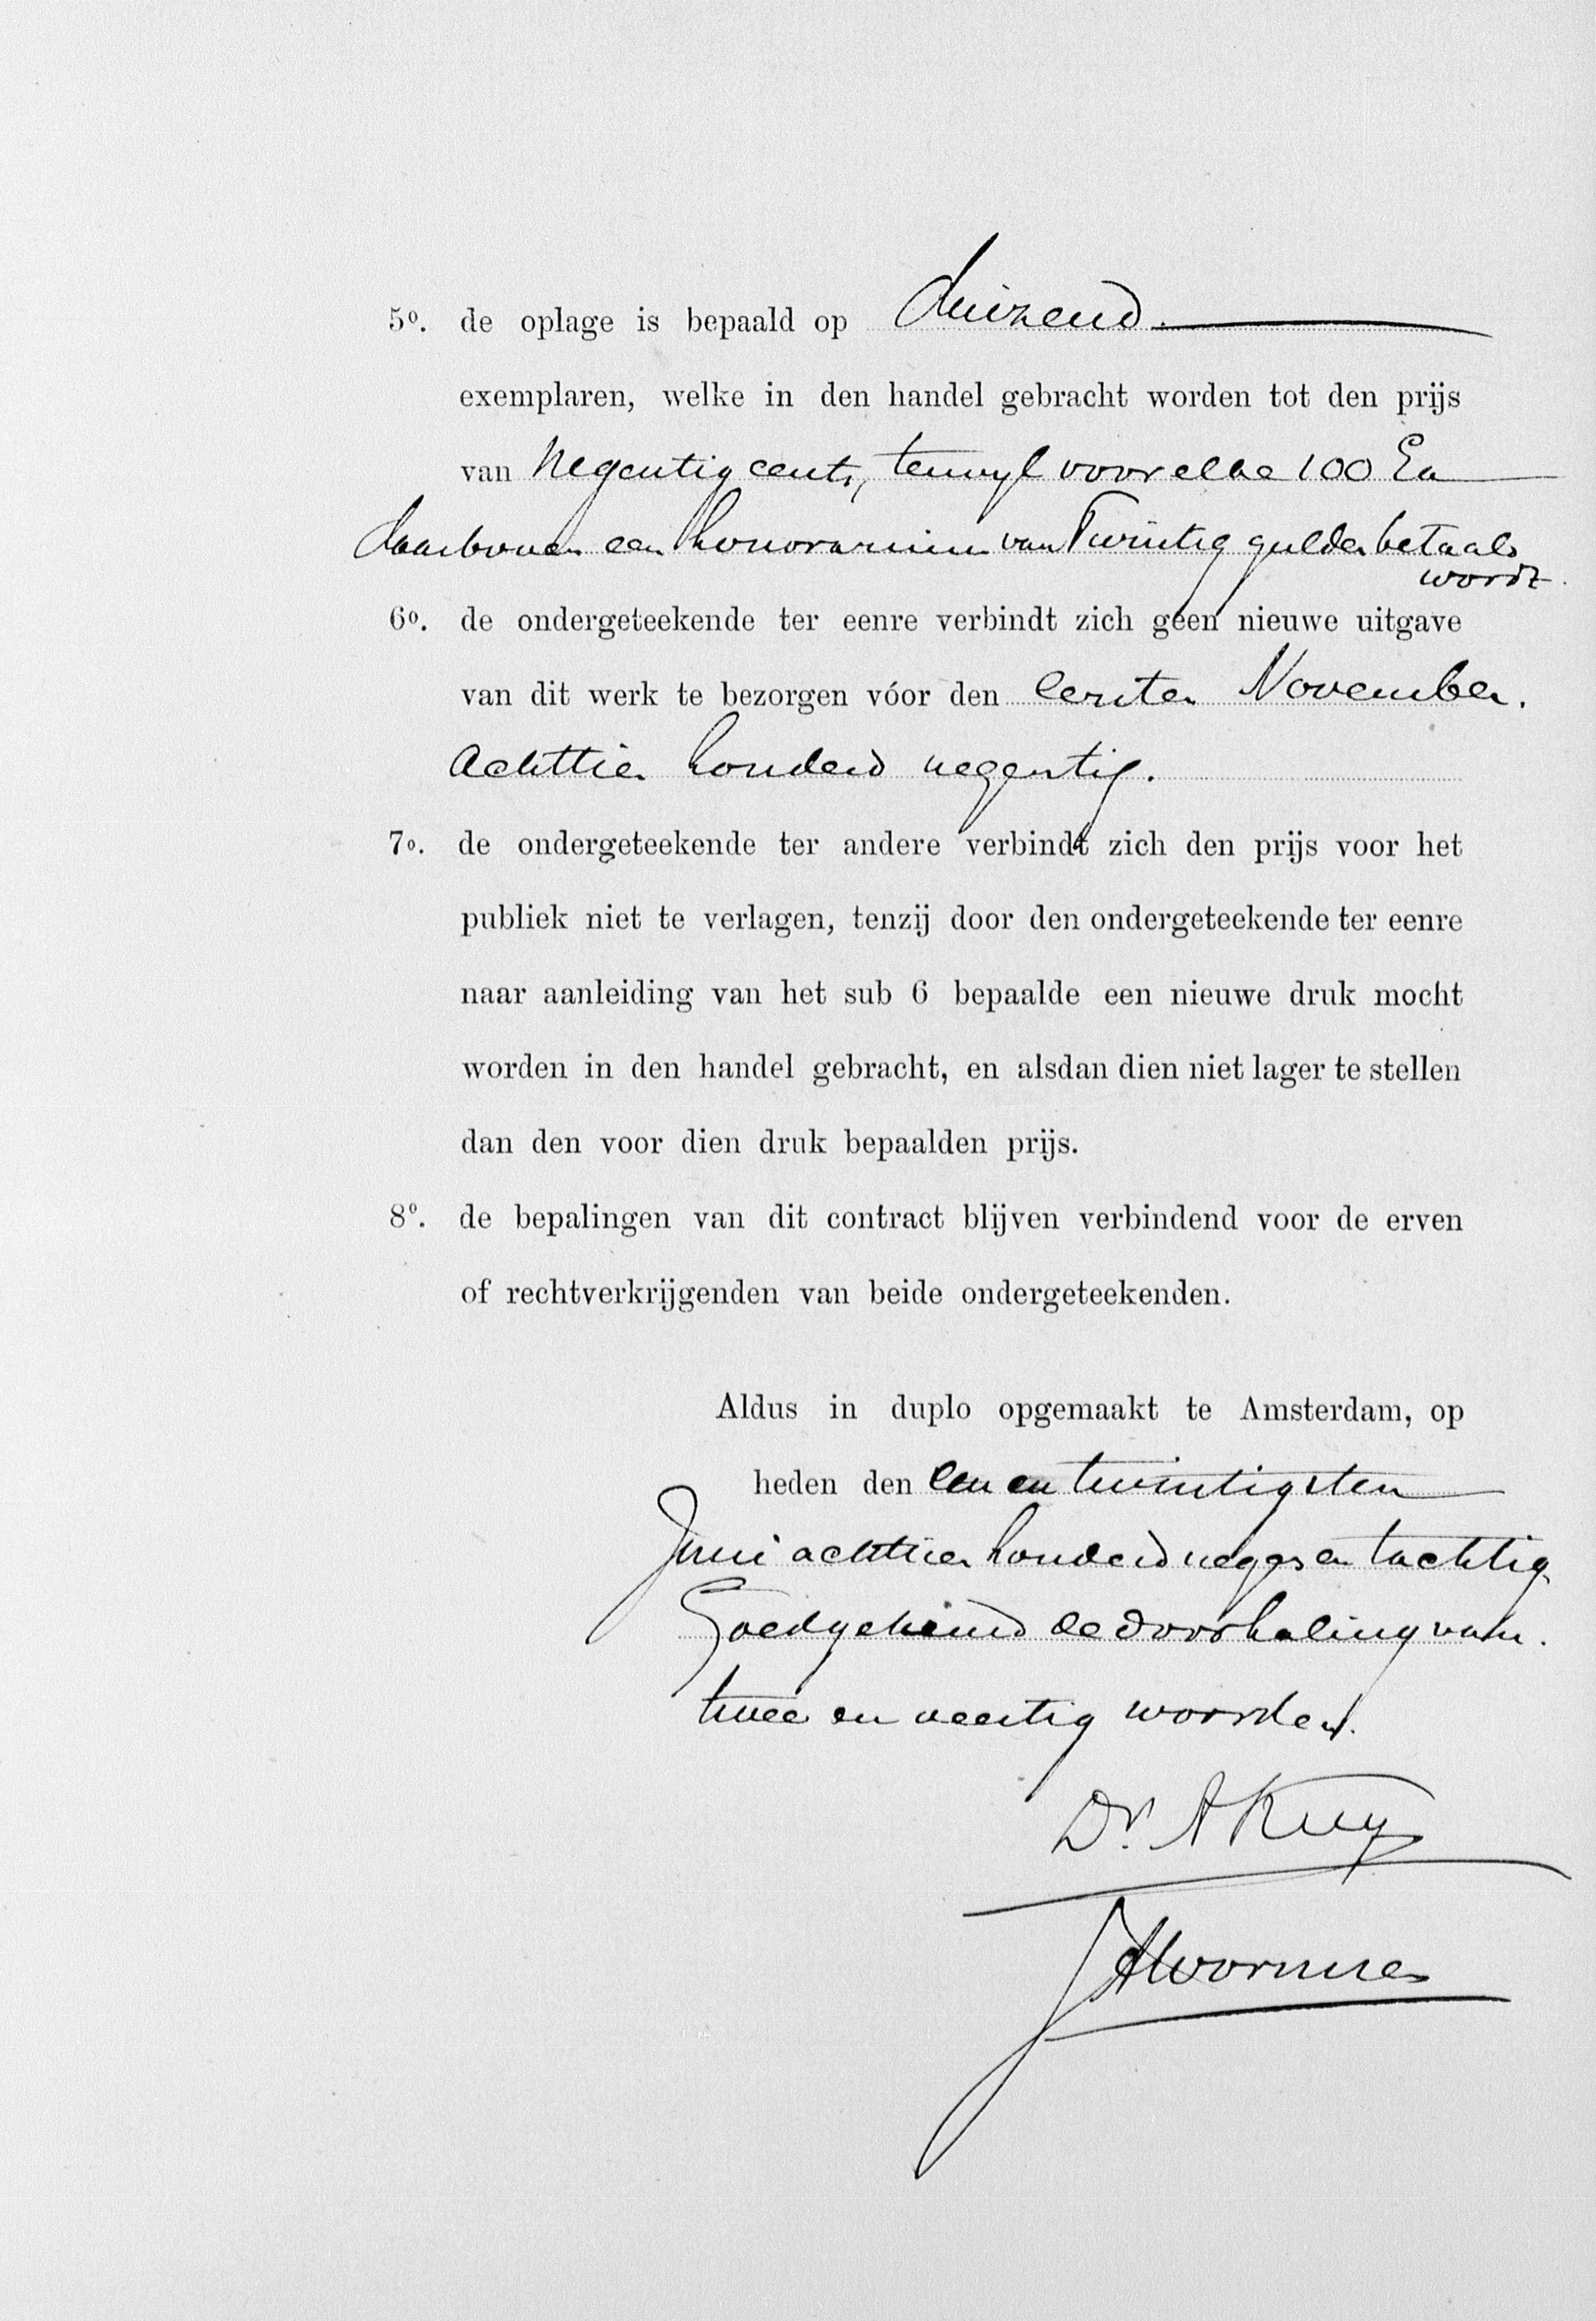 5o. de oplage is bepaald op duizend.
exemplaren, welke in den handel gebracht worden tot den prijs
van Negentig cents, terwyl voor elke 100 Ex
daarboven een honorarium van Twintig gulden betaald
wordt.
6o. de ondergeteekende ter eenre verbindt zich geen nieuwe uitgave
van dit werk te bezorgen vóor den eersten November.
Achttien honderd neggentig.
7o. de ondergeteekende ter andere verbindt zich den prijs voor het
publiek niet te verlagen, tenzij door den ondergeteekende ter eenre
naar aanleiding van het sub 6 bepaalde een nieuwe druk mocht
worden in den handel gebracht, en alsdan dien niet lager te stellen
dan den voor dien druk bepaalden prijs.
8o. de bepalingen van dit contract blijven verbindend voor de erven
of rechtverkrijgenden van beide ondergeteekenden.
Aldus in duplo opgemaakt te Amsterdam, op
heden den een en twintigsten
Juni achttien honderd neggen en tachtig.
Goedgekeurd de doorhaling van.
twee en veertig woorden.
Dr. A Kuyper
JA Wormser